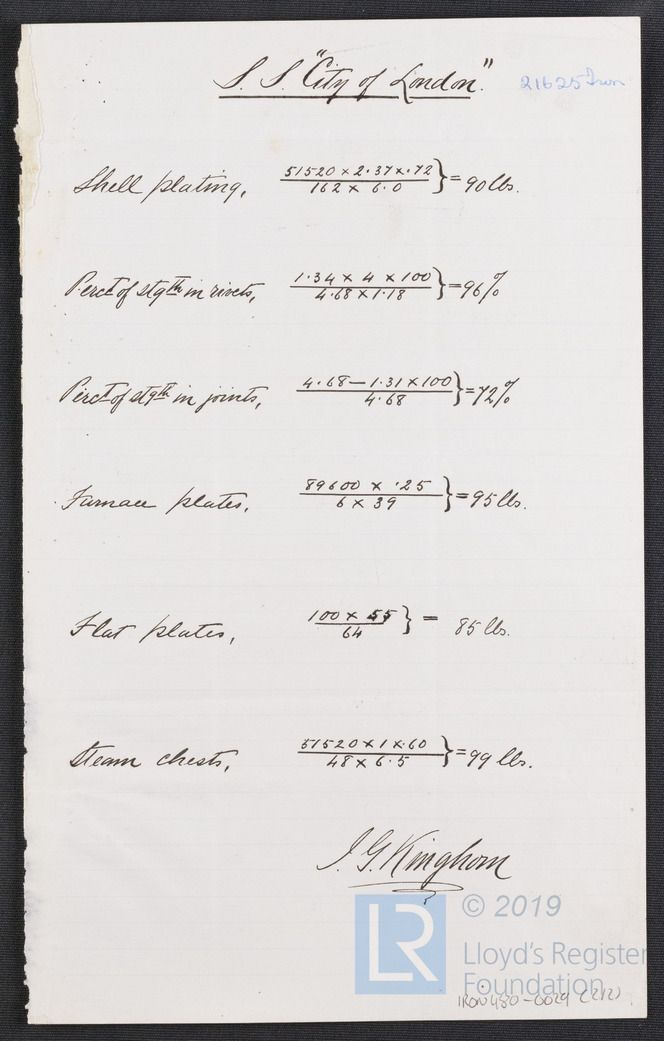 S. S. "City of London".
21625 Iron
Shell plating, 51520 x 2.37 x .72 / 162 x 6.0 } = 90 lbs.
Perct of stgth in rivets, 1.34 x 4 x 100 / 4.68 x 1.18 } = 96 %
Perct of stgth in joints, 4.68 — 1.31 x 100 / 4.68 } = 72 %
Furnace plates, 89600 x .25 / 6 x 39 } = 95 lbs.
Flat plates, 100 x 55 / 64 } = 85 lbs.
Steam chests, 51520 x 1 x .60 / 48 x 6.5 } = 99 lbs.
J. G. Kinghorn
LR © 2019
Lloyd's Register
Foundation
IRON480-0029 (2/2)